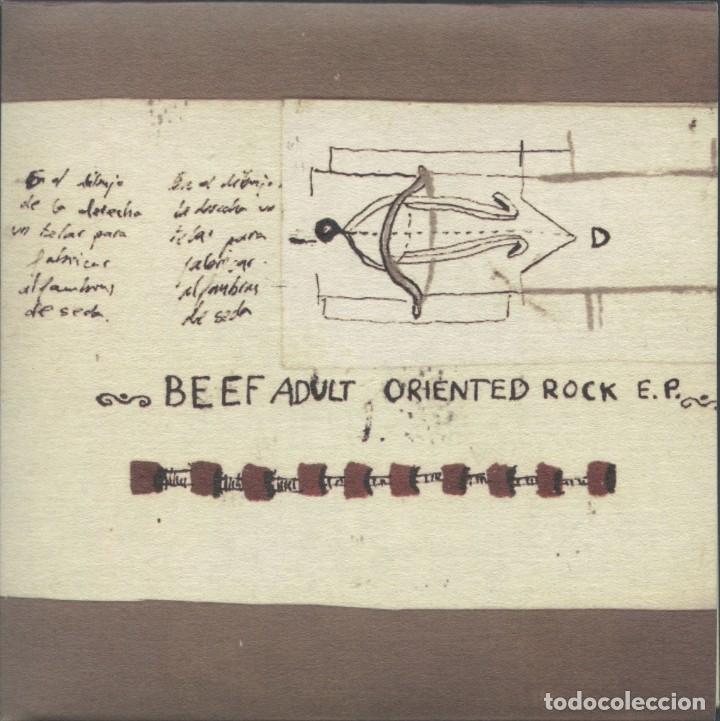 En el dibujo
de la derecha
un telar para
fabricar
alfombras
de seda.
En el dibujo
la derecha un
telar para
fabricar
alfombras
de seda
D
BEEF ADULT ORIENTED ROCK E.P.
todocoleccion